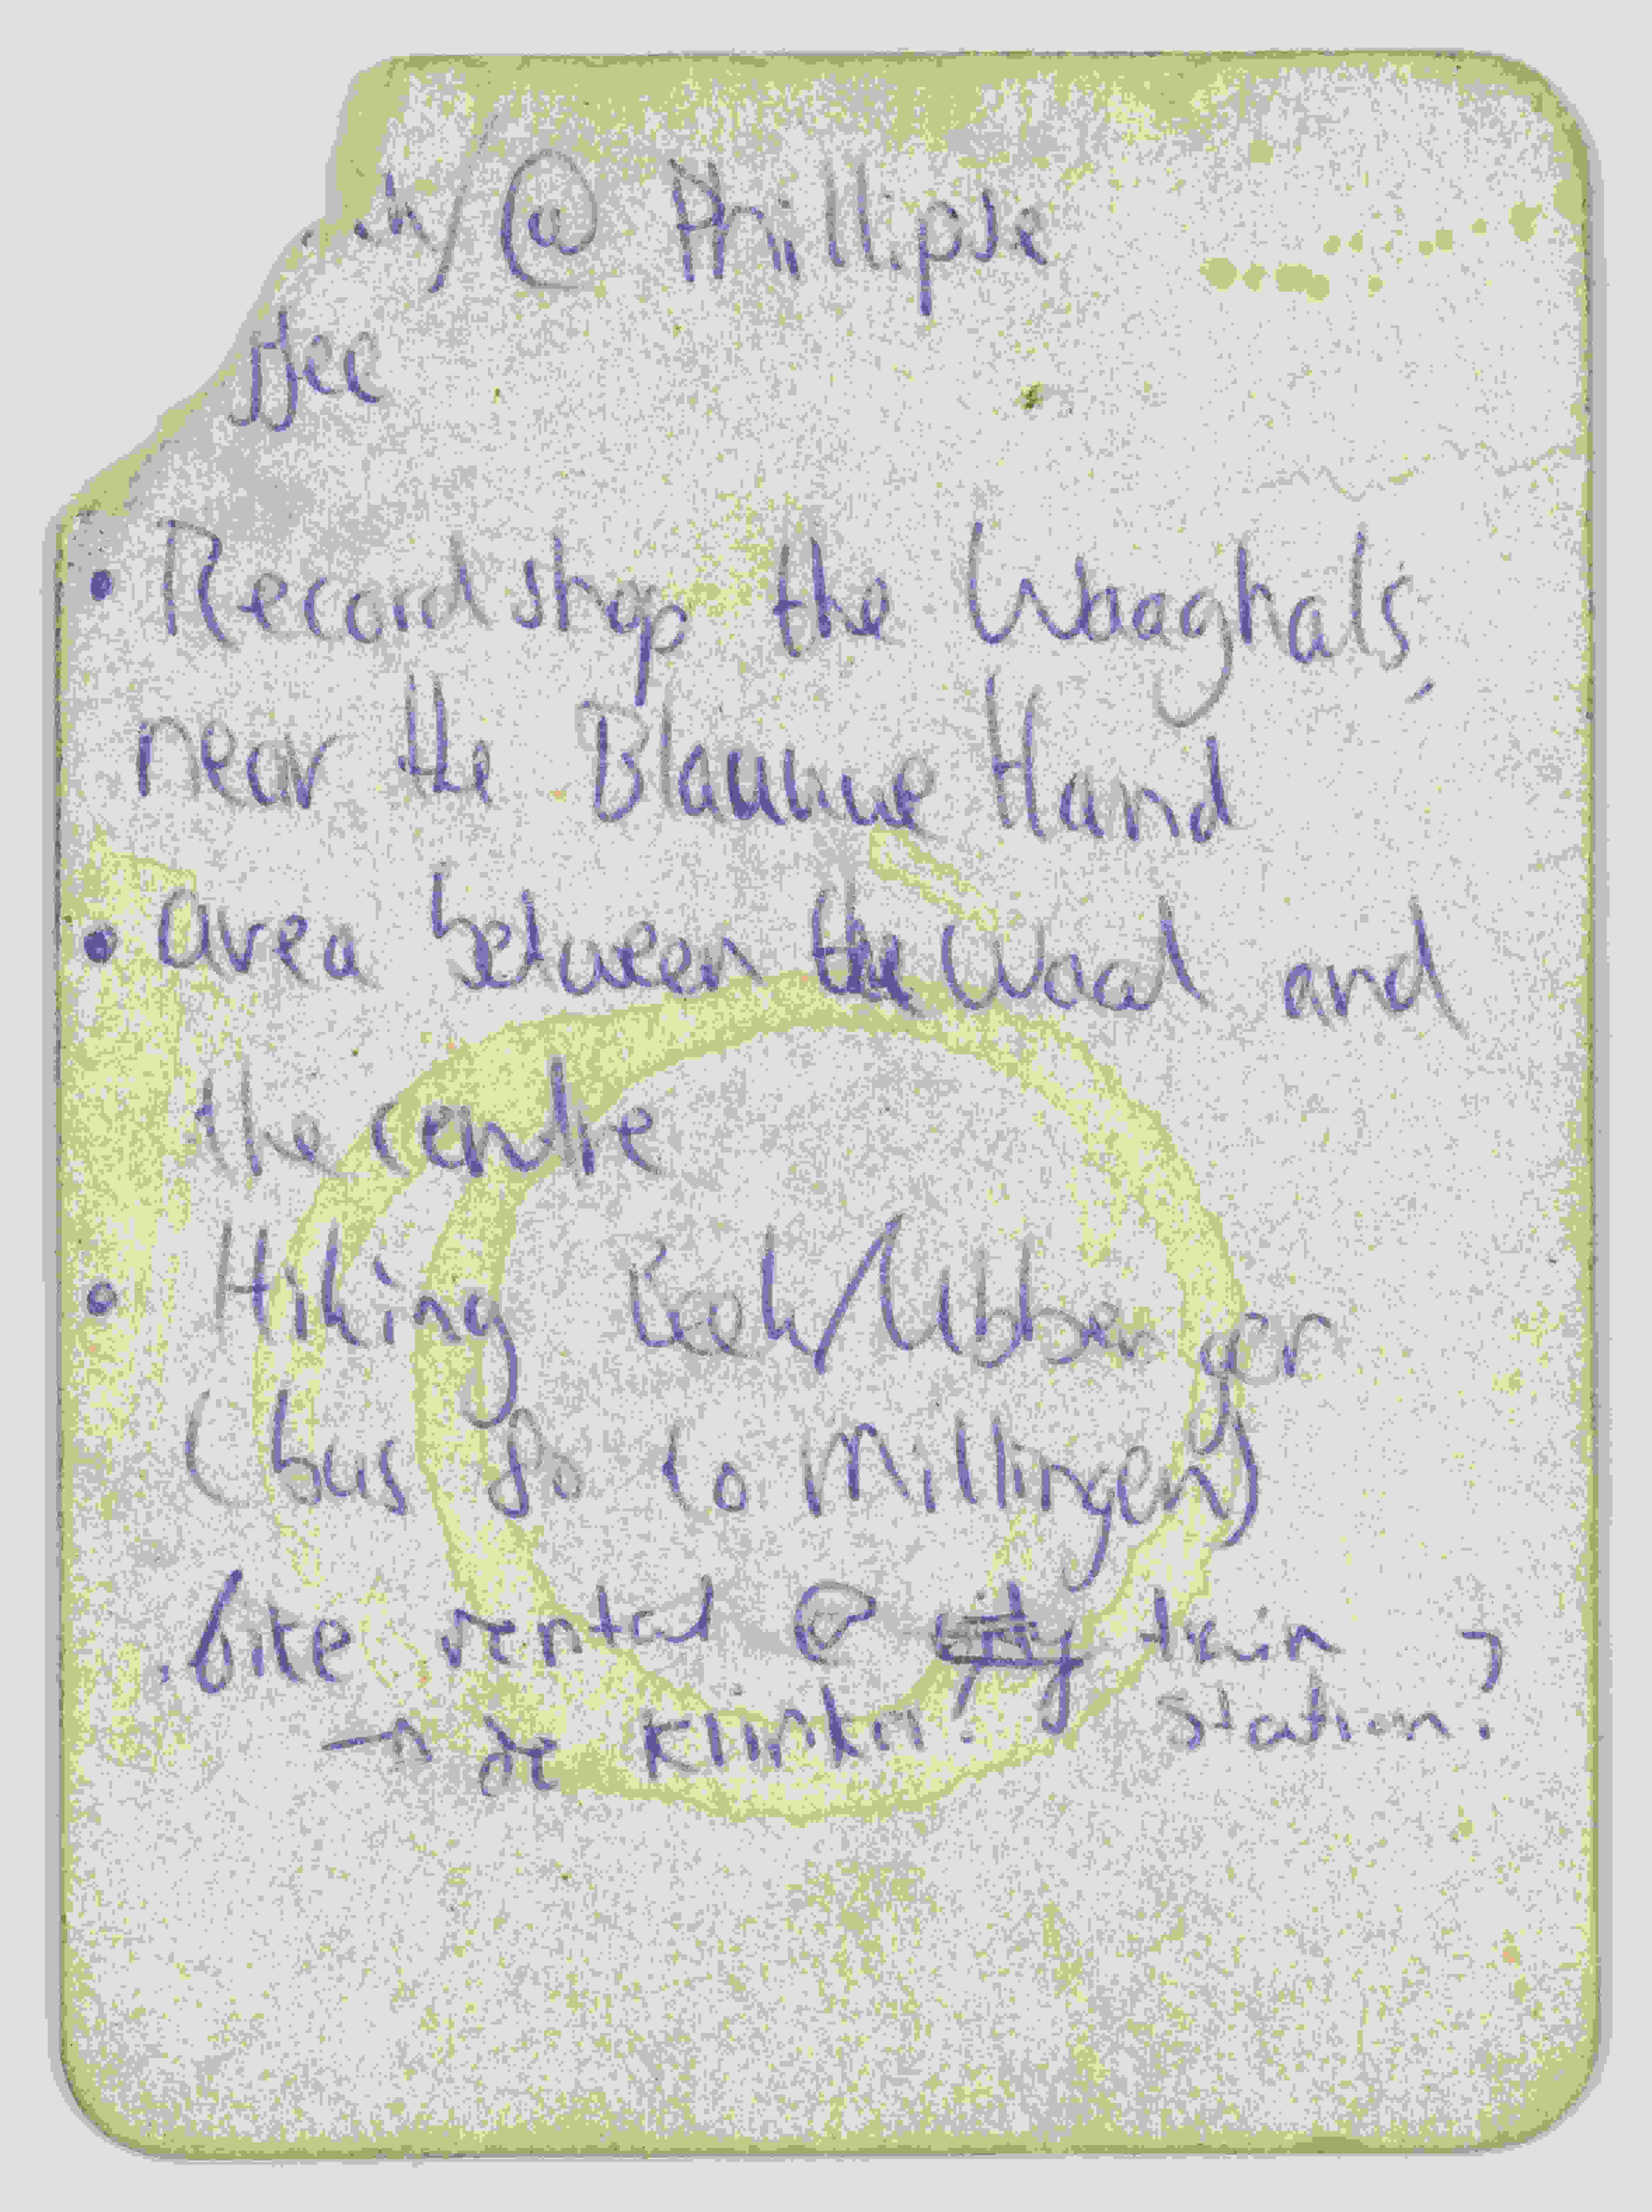 @ Phillipse
ffee
• Recordshop the Waaghals,
near the Blauwe Hand
• area between the Waal and
the centre
• Hiking Kek/Ubberger
(bus 80 to Millingen)
• bike rental @ train
station?
→ de Klinker?